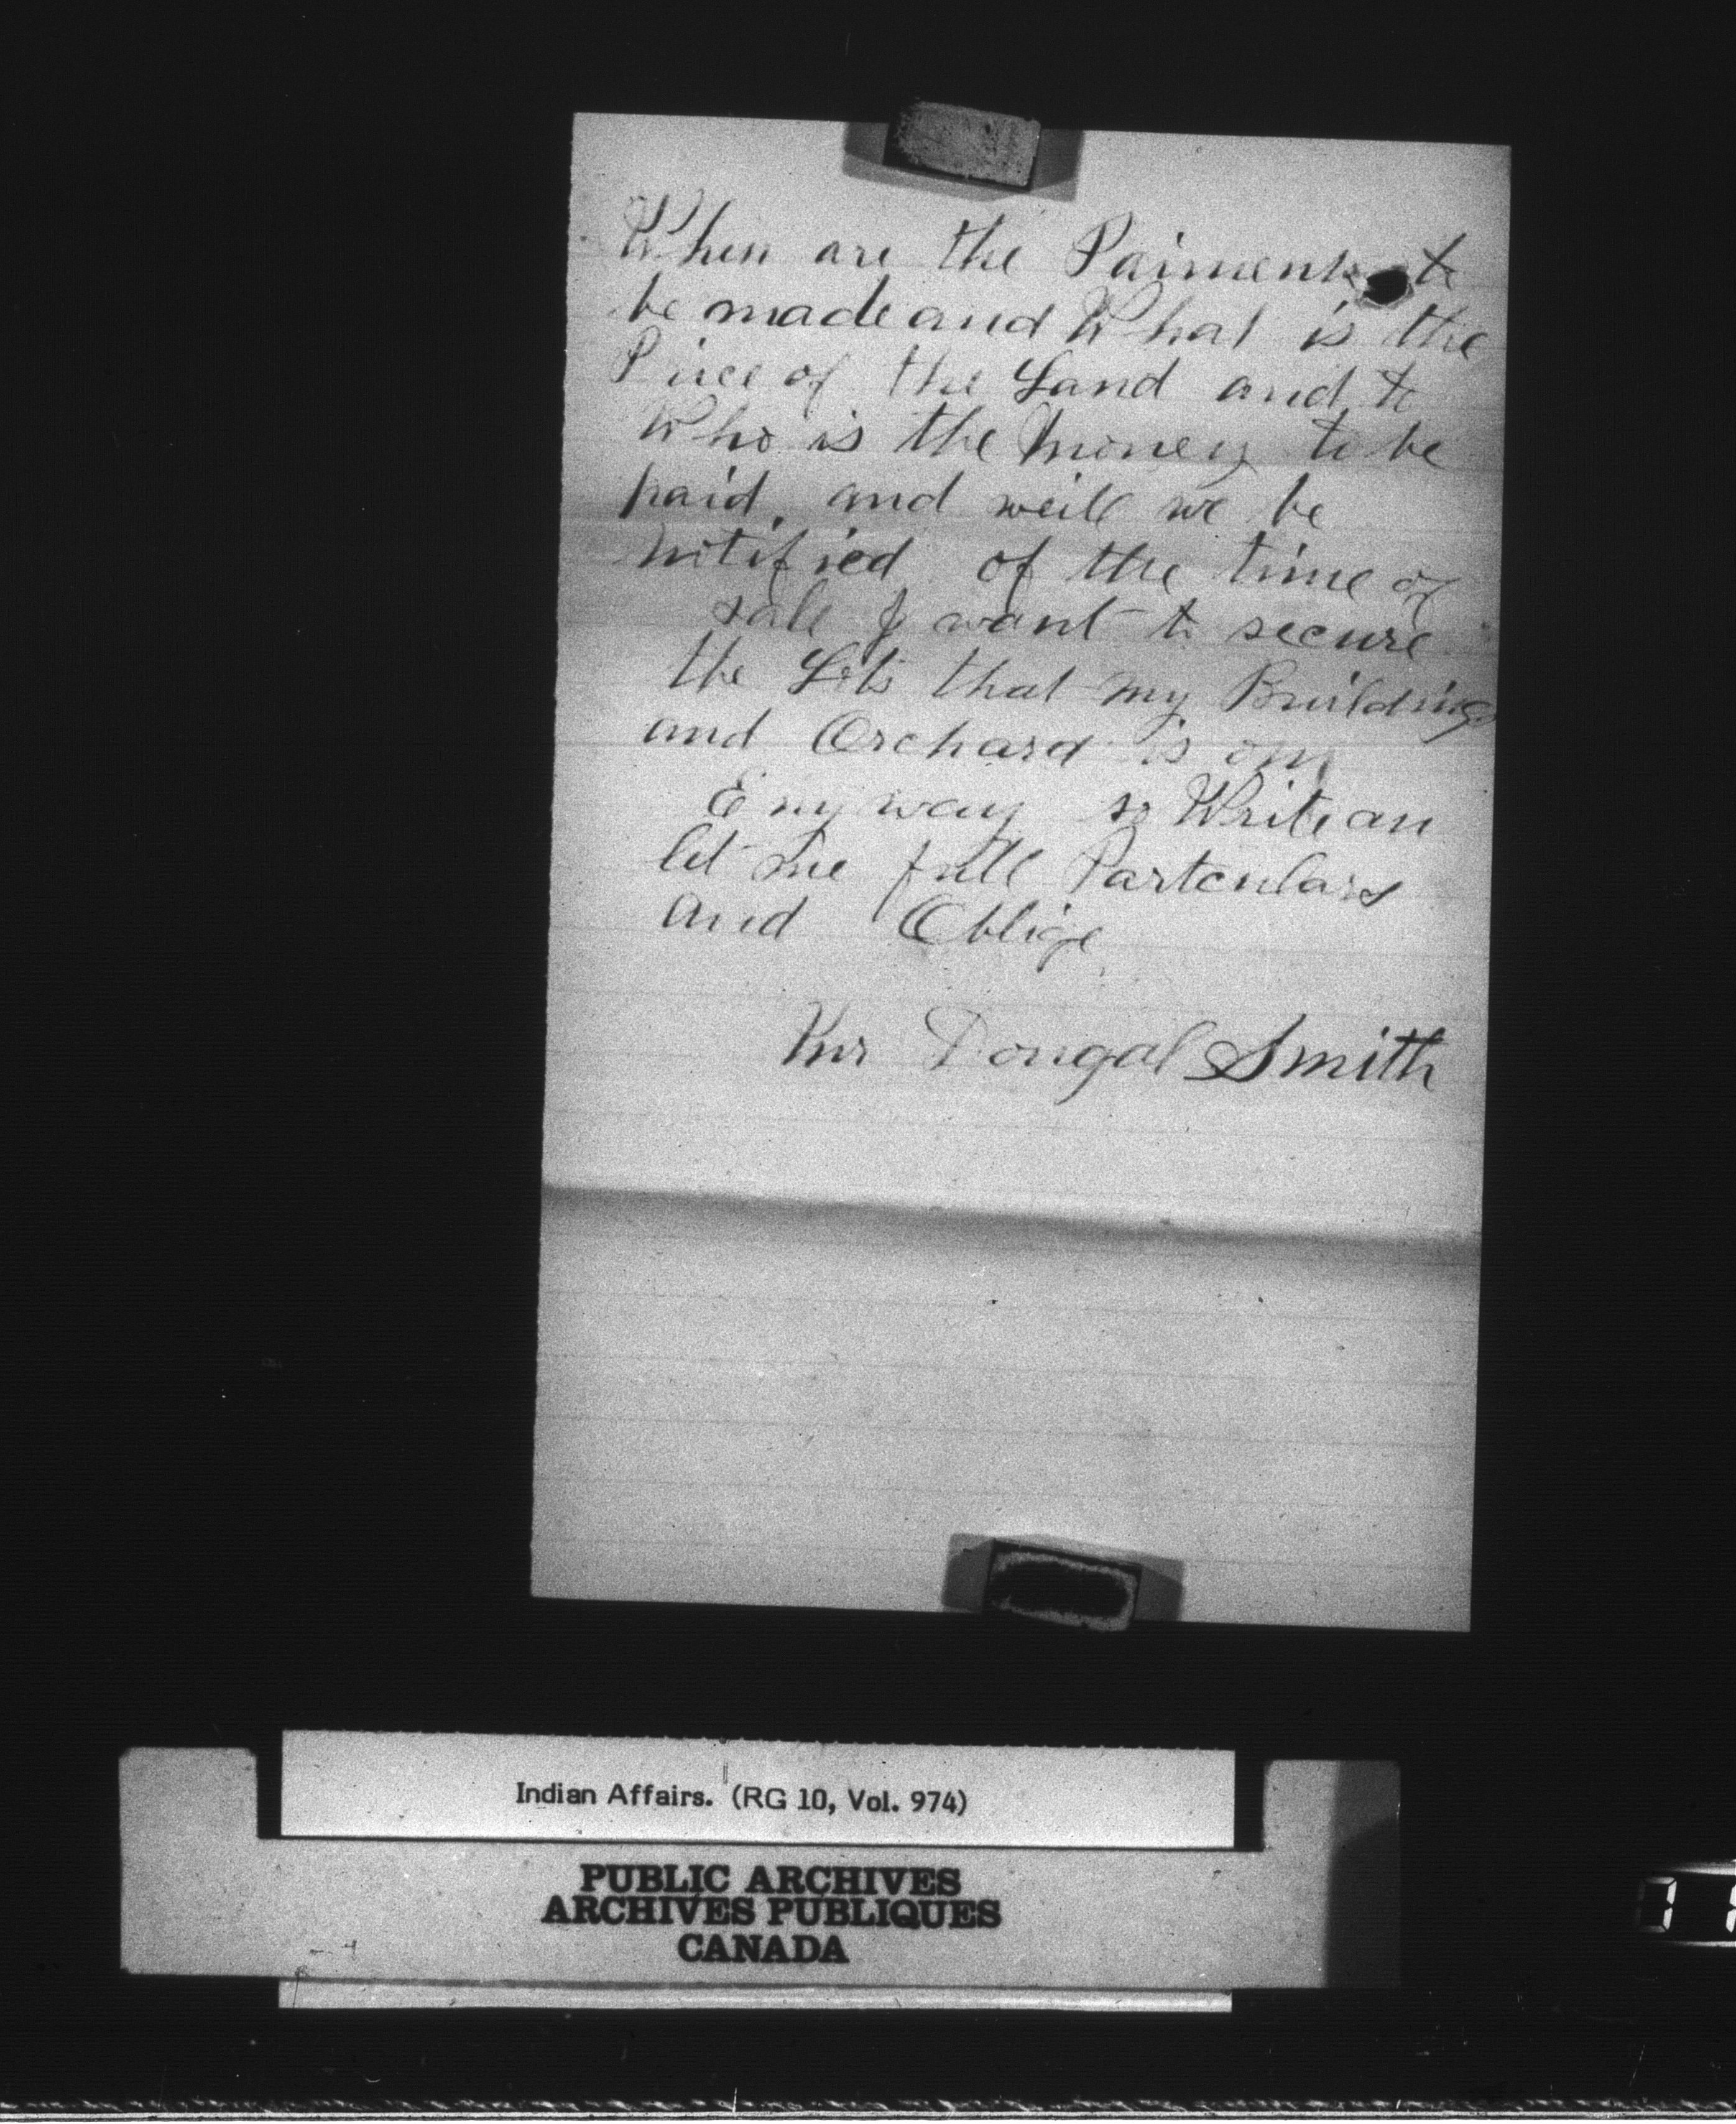 When are the Paiments to
be made and What is the
Pirce of the Land and to
Who is the money to be
paid, and weill we be
notified of the time of
sale I want to secure
the Lots that my Buildings
and Orchard is on
Eny way so Write an
let me full Partculars
and Oblige
Dougal Smith
Indian Affairs. (RG 10, Vol. 974)
PUBLIC ARCHIVES
ARCHIVES PUBLIQUES
CANADA